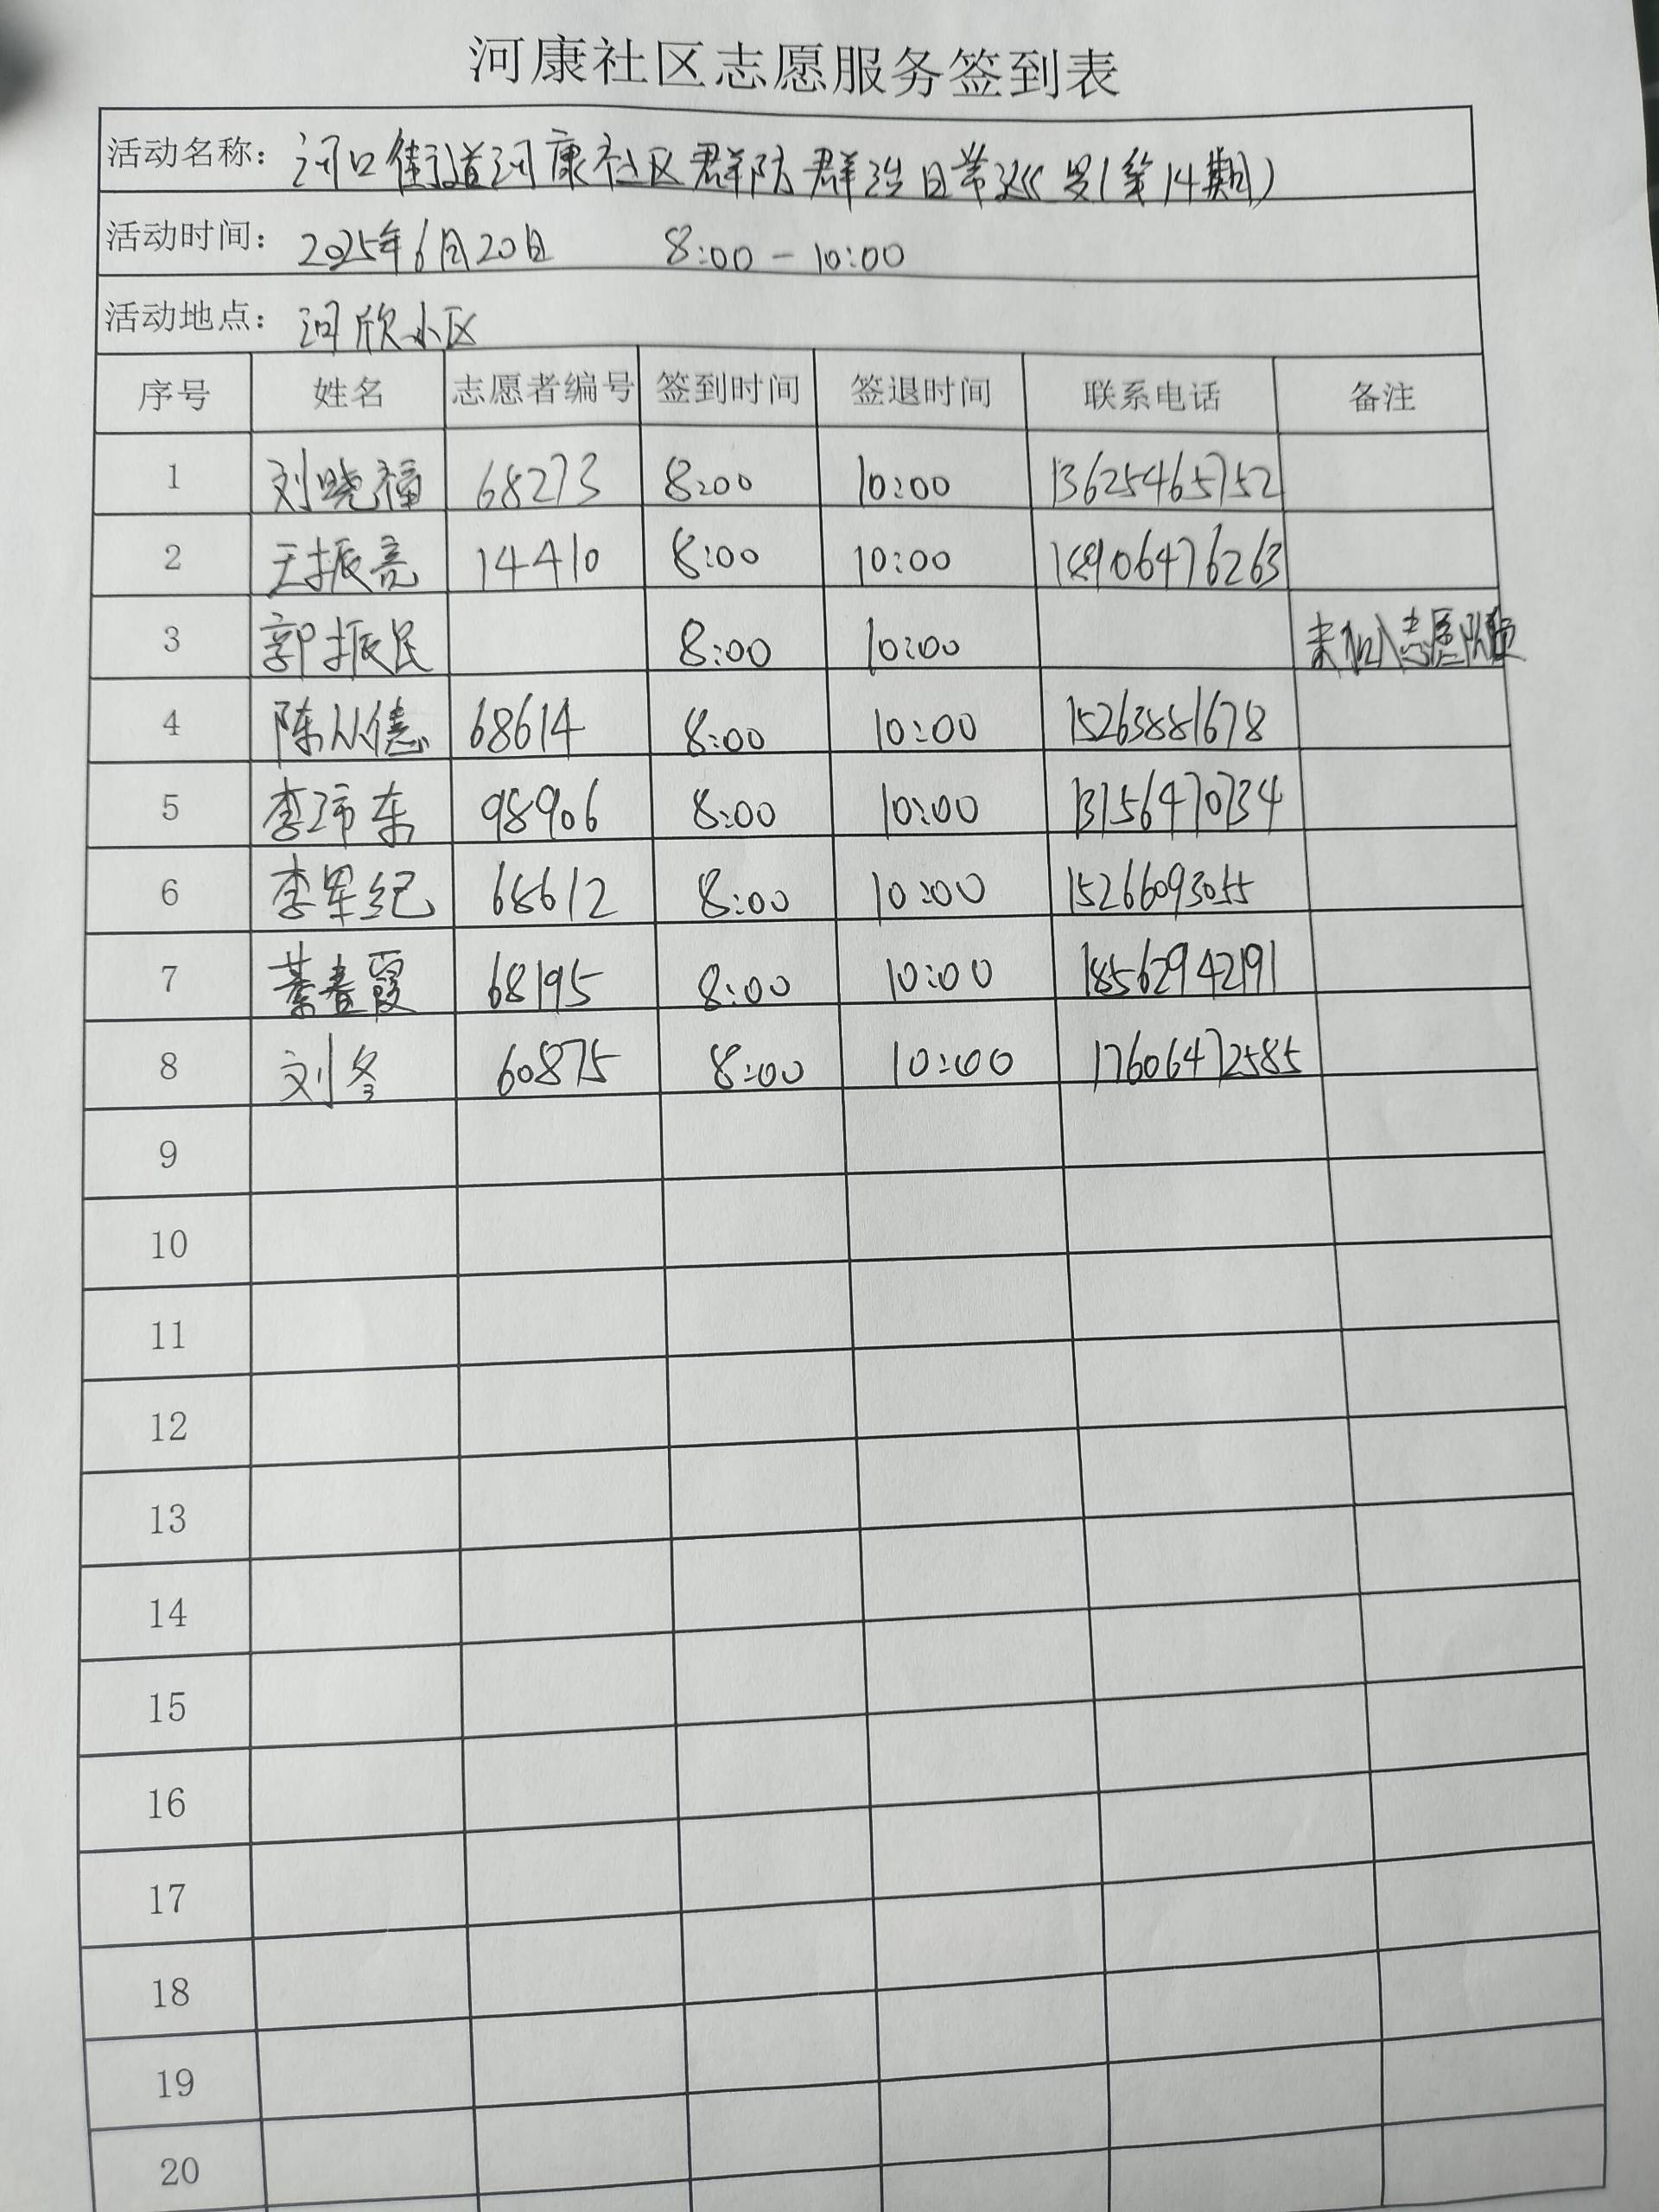 河康社区志愿服务签到表
活动名称: 河口街道河康社区群防群治日常巡逻(第14期)
活动时间: 2025年6月20日 8:00-10:00
活动地点: 河欣小区
序号 姓名 志愿者编号 签到时间 签退时间 联系电话 备注
1 刘晓 68273 8:00 10:00 13625465752
2 王振亮 14410 8:00 10:00 18906476263
3 郭振民 8:00 10:00 未加入志愿队
4 陈从德 68614 8:00 10:00 15263881678
5 李玮东 98906 8:00 10:00 13156470734
6 李军纪 68612 8:00 10:00 15266093055
7 綦春霞 68195 8:00 10:00 18562942191
8 刘冬 60875 8:00 10:00 17606472585
9
10
11
12
13
14
15
16
17
18
19
20